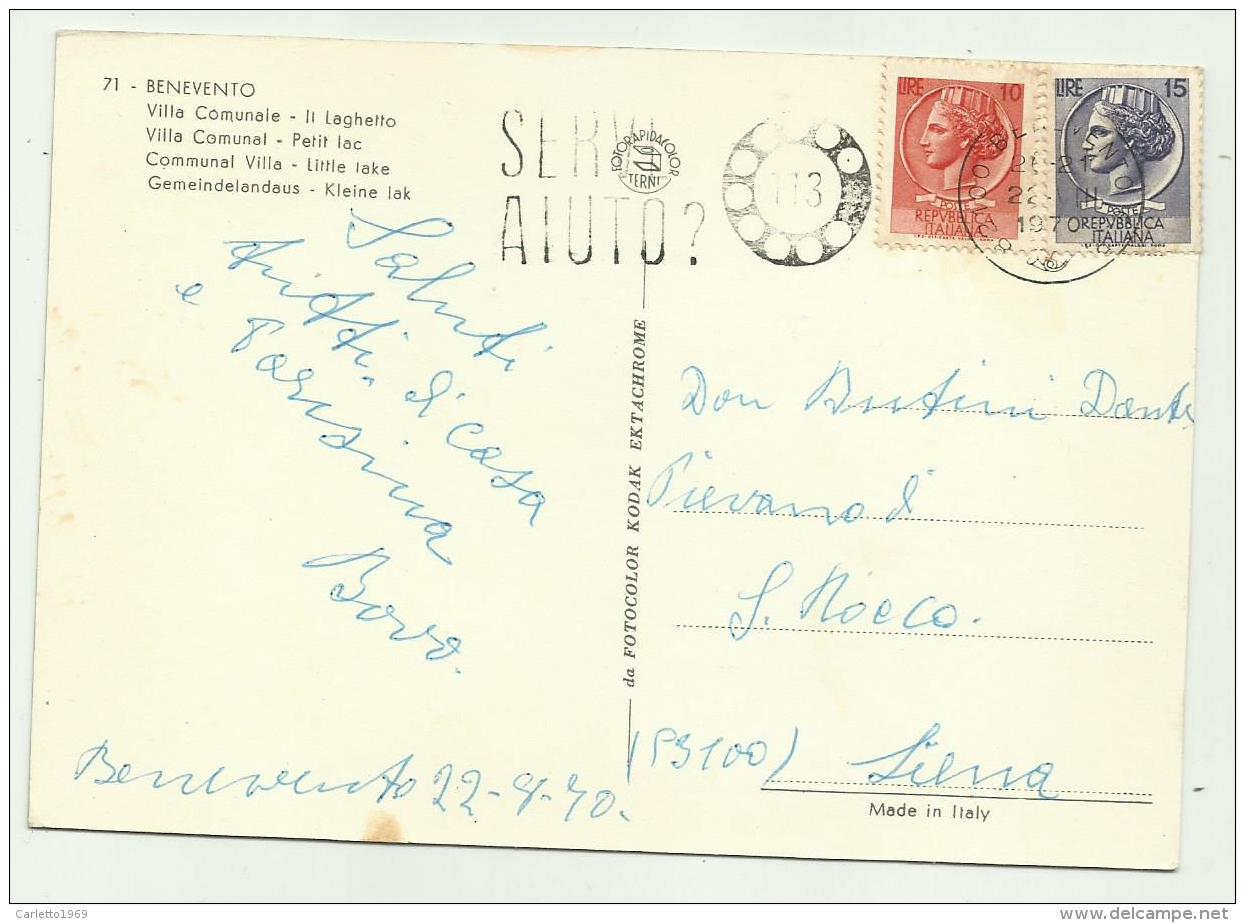 71 - BENEVENTO
Villa Comunale - Il Laghetto
Villa Comunal - Petit lac
Communal Villa - Little lake
Gemeindelandaus - Kleine lak
SERVE
AIUTO?
113
FOTORAPIDACOLOR
TERNI
LIRE 10
POSTE
REPVBBLICA
ITALIANA
LIRE 15
POSTE
REPVBBLICA
ITALIANA
1970
Saluti
tutti di casa
e
Borro.
Benevento 22-8-70.
da FOTOCOLOR KODAK EKTACHROME
Don Butini Dante
Pievano di
S. Rocco.
(53100) Siena
Made in Italy
Carletto1969
delcampe.net